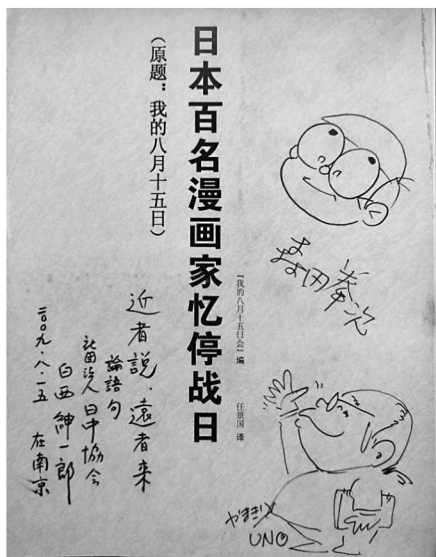 日本百名漫画家忆停战日
（原题：我的八月十五日）
『我的八月十五日会』编
任景国 译
近者説、遠者来
論語句
社団法人日中協会
白西紳一郎
二〇〇九・八・一五 在南京
森田拳次
やまぎり
UNO